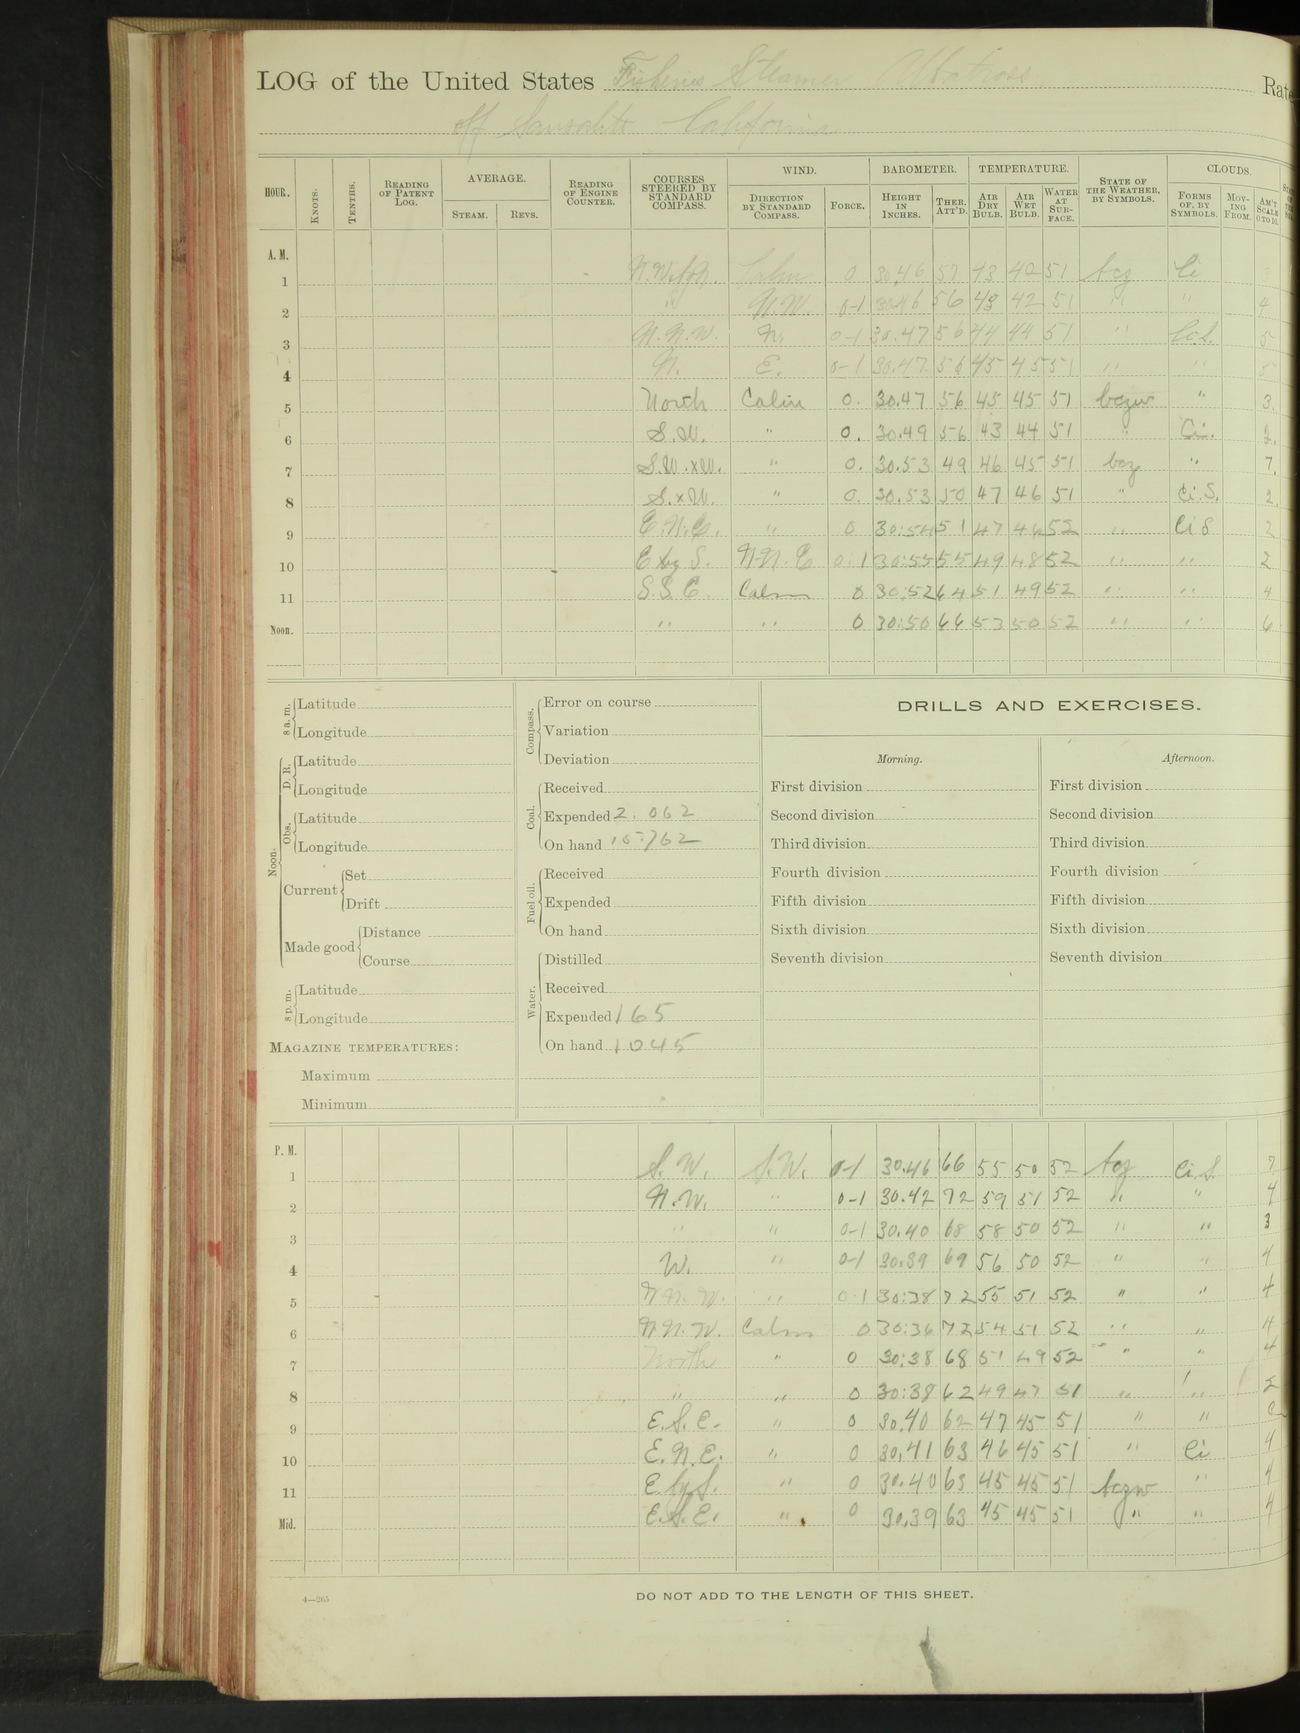 LOG of the United States Fisheries Steamer Albatross, Rate
off Sausalito California
HOUR. KNOTS. TENTHS. READING OF PATENT LOG. AVERAGE. STEAM. REVS. READING OF ENGINE COUNTER. COURSES STEERED BY STANDARD COMPASS. WIND. DIRECTION BY STANDARD COMPASS. FORCE. BAROMETER. HEIGHT IN INCHES. THER. ATT'D. TEMPERATURE. AIR DRY BULB. AIR WET BULB. WATER AT SURFACE. STATE OF THE WEATHER, BY SYMBOLS. CLOUDS. FORMS OF, BY SYMBOLS. MOVING FROM. AM'T SCALE 0 TO 10.
A. M.
1 Calm 0 30.46 57 43 42 51 bcz Ci
2 " N.W. 0-1 30.46 56 43 42 51 " " 4
3 N.N.W. N. 0-1 30.47 56 44 44 51 " 5
4 N. E. 0-1 30.47 56 45 45 51 " "
5 North Calm 0. 30.47 56 45 45 51 bczw " 3.
6 S.W. " 0. 30.49 56 43 44 51 " Ci. 2.
7 S.W.xW. " 0. 30.53 49 46 45 51 bcz " 7.
8 S.xW. " 0. 30.53 50 47 46 51 " Ci.S. 2.
9 E.N.E. " 0 30:54 51 47 46 52 " Ci S 2
10 E by S. N.N.E 0-1 30:55 55 49 48 52 " " 2
11 S.S.E. Calm 0 30:52 64 51 49 52 " " 4
Noon. " " 0 30:50 66 53 50 52 " " 6
8 a. m. Latitude
Longitude
Noon. D. R. Latitude
Longitude
Obs. Latitude
Longitude
Current Set
Drift
Made good Distance
Course
8 p. m. Latitude
Longitude
MAGAZINE TEMPERATURES:
Maximum
Minimum
Compass. Error on course
Variation
Deviation
Coal. Received
Expended 2.062
On hand 15:762
Fuel oil. Received
Expended
On hand
Water. Distilled
Received
Expended 165
On hand 1045
DRILLS AND EXERCISES.
Morning. Afternoon.
First division First division
Second division Second division
Third division Third division
Fourth division Fourth division
Fifth division Fifth division
Sixth division Sixth division
Seventh division Seventh division
P. M.
1 S.W. S.W. 0-1 30.46 66 55 50 52 bcz Ci.S. 7
2 N.W. " 0-1 30.42 72 59 51 52 " " 4
3 " " 0-1 30.40 68 58 50 52 " " 3
4 W. " 0-1 30.39 69 56 50 52 " " 4
5 N.N.W. " 0-1 30:38 72 55 51 52 " " 4
6 N.N.W. Calm 0 30:36 72 54 51 52 " " 4
7 North " 0 30:38 68 51 49 52 " " 4
8 " " 0 30:38 62 49 47 51 " " 2
9 E.S.E. " 0 30.40 62 47 45 51 " "
10 E.N.E. " 0 30.41 63 46 45 51 " Ci 4
11 E by S. " 0 30.40 63 45 45 51 bczw " 4
Mid. E.S.E. " 0 30.39 63 45 45 51 " " 4
4—265
DO NOT ADD TO THE LENGTH OF THIS SHEET.